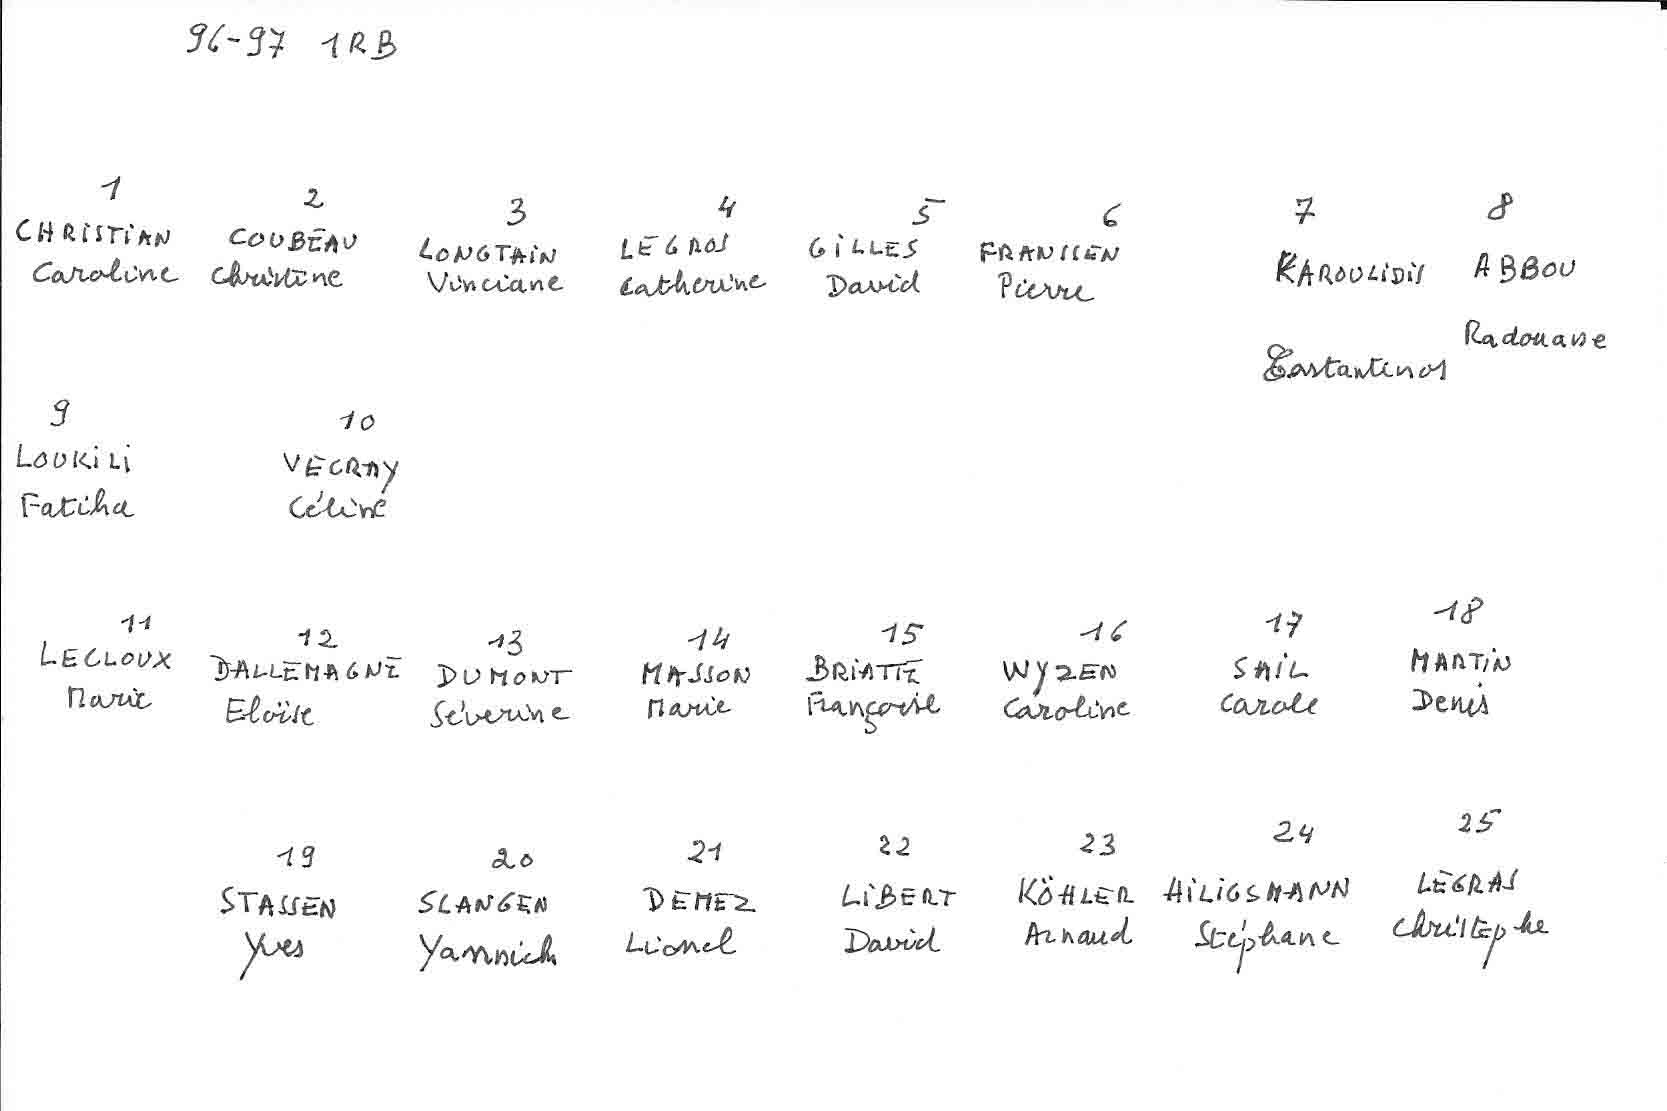 96-97 1RB
1 2 3 4 5 6 7 8
CHRISTIAN COUBEAU LONGTAIN LEGROS GILLES FRANSSEN KAROULIDIS ABBOU
Caroline Christine Vinciane Catherine David Pierre Radouane
9 10
LOUKILI VECRAY
Fatiha Céline
11 12 13 14 15 16 17 18
LECLOUX DALLEMAGNE DUMONT MASSON BRIATTE WYZEN SAIL MARTIN
Marie Eloïse Séverine Marie Françoise Caroline Carole Denis
19 20 21 22 23 24 25
STASSEN SLANGEN DEMEZ LIBERT KÖHLER HILIGSMANN LEGRAS
Yves Yannick Lionel David Arnaud Stéphane Christephe